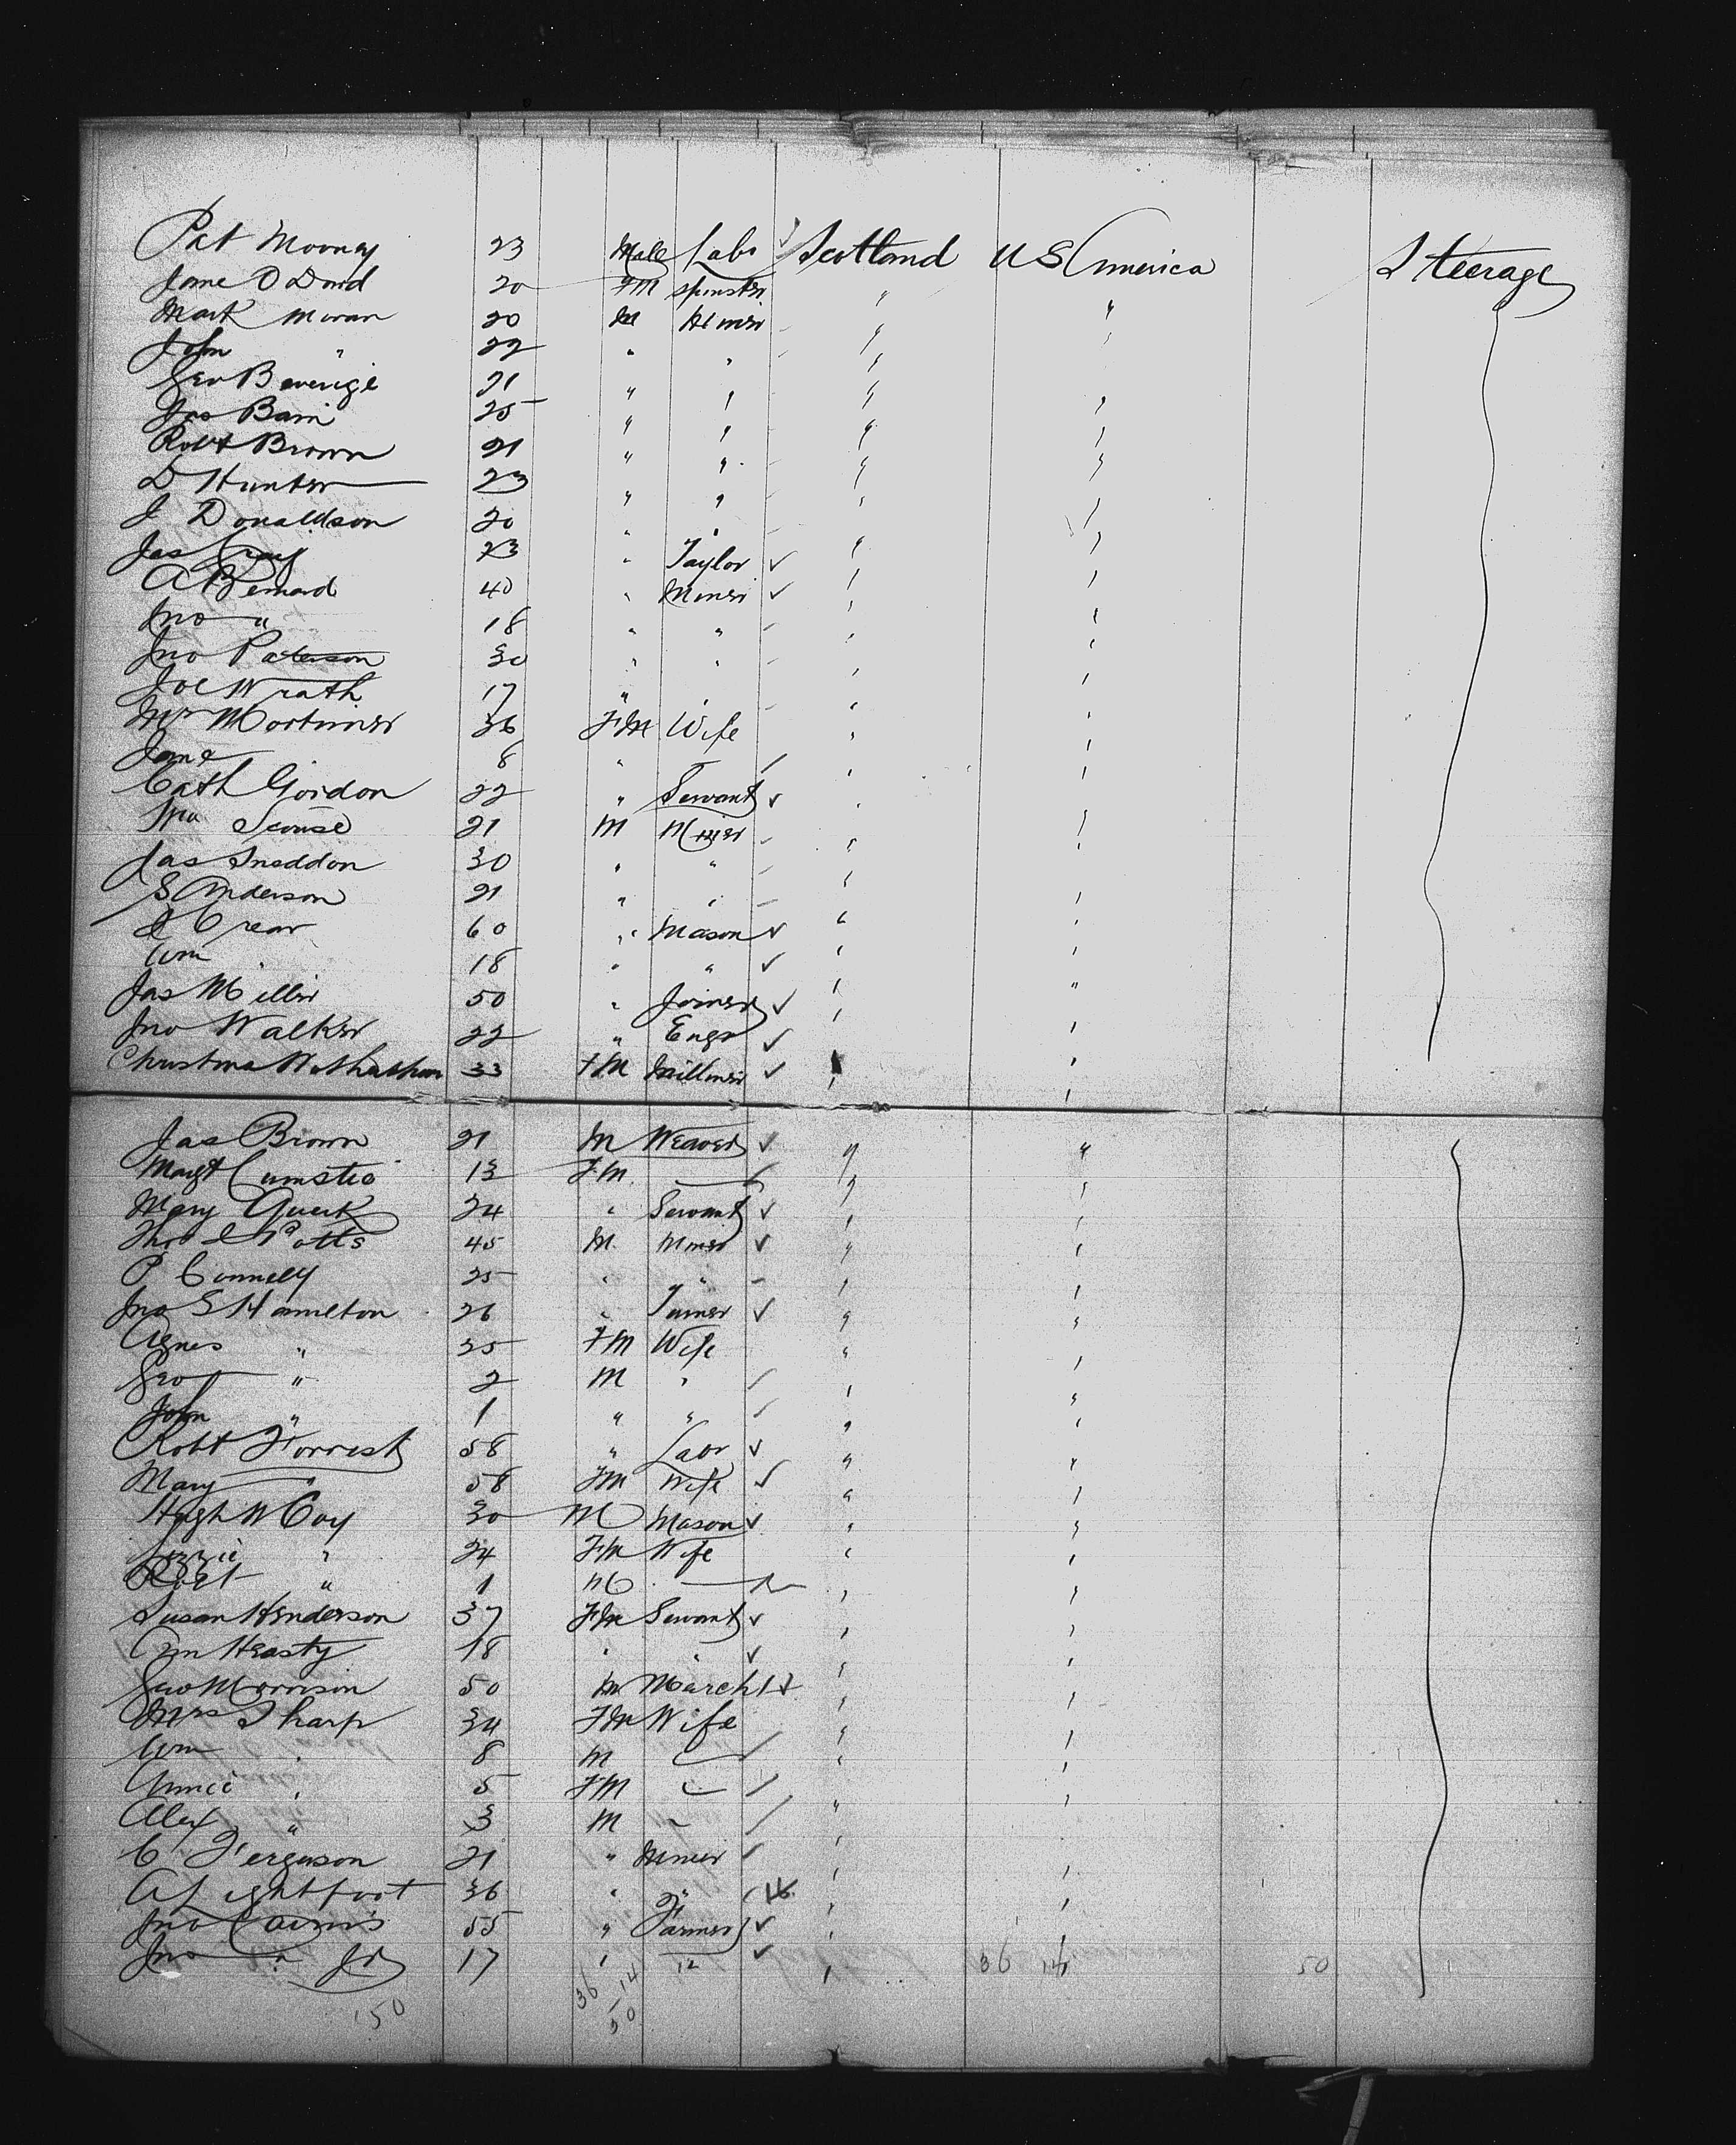 Pat Mooney 23 Male Labr Scotland US America Steerage
Jane O Dowd 20 FM Spinster " "
Mark Moran 20 M Miner " "
John " 22 " " " "
Geo Beverige 21 " " " "
Jas Bain 25 " " " "
Robt Brown 21 " " " "
D Hunter 23 " " " "
J Donaldson 20 " " " "
Jas Gray 23 " Taylor " "
A Bernard 40 " Miner " "
Jno " 18 " " " "
Jno Paterson 30 " " " "
Joe Wrath 17 " " " "
Mrs Mortimer 36 FM Wife " "
Jane 8 " " "
Cath Gordon 22 " Servant " "
Wm Scouse 21 M Miner " "
Jas Sneddon 30 " " " "
S Anderson 21 " " " "
J Crear 60 " Mason " "
Wm " 18 " " " "
Jas Miller 50 " Joiner " "
Jno Walker 22 " Engr " "
Christina 33 FM Milliner " "
Jas Brown 21 M Weaver " "
Margt 13 FM " "
Mary Querk 24 " Servant " "
Thos Potts 45 M Miner " "
P Connelly 25 " " " "
Jno S Hamelton 26 " Turner " "
Agnes " 25 FM Wife " "
Geo " 2 M " " "
John " 1 " " " "
Robt Forrest 58 " Labr " "
Mary " 58 FM Wife " "
Hugh McCoy 30 M Mason " "
Lizzie " 24 FM Wife " "
Robt " 1 M " "
Susan Henderson 37 FM Servant " "
Heasty 18 " " " "
Geo Morrison 50 M March't " "
Mrs Sharp 34 FM Wife " "
Wm " 8 M " "
Annie " 5 FM " "
Alex " 3 M " "
C Ferguson 21 " Miner " "
A Lightfoot 36 " " " "
Jno Cairns 55 " Farmer " "
Jno " Jr 17 " " " " 36 14 50
150 36 14
50